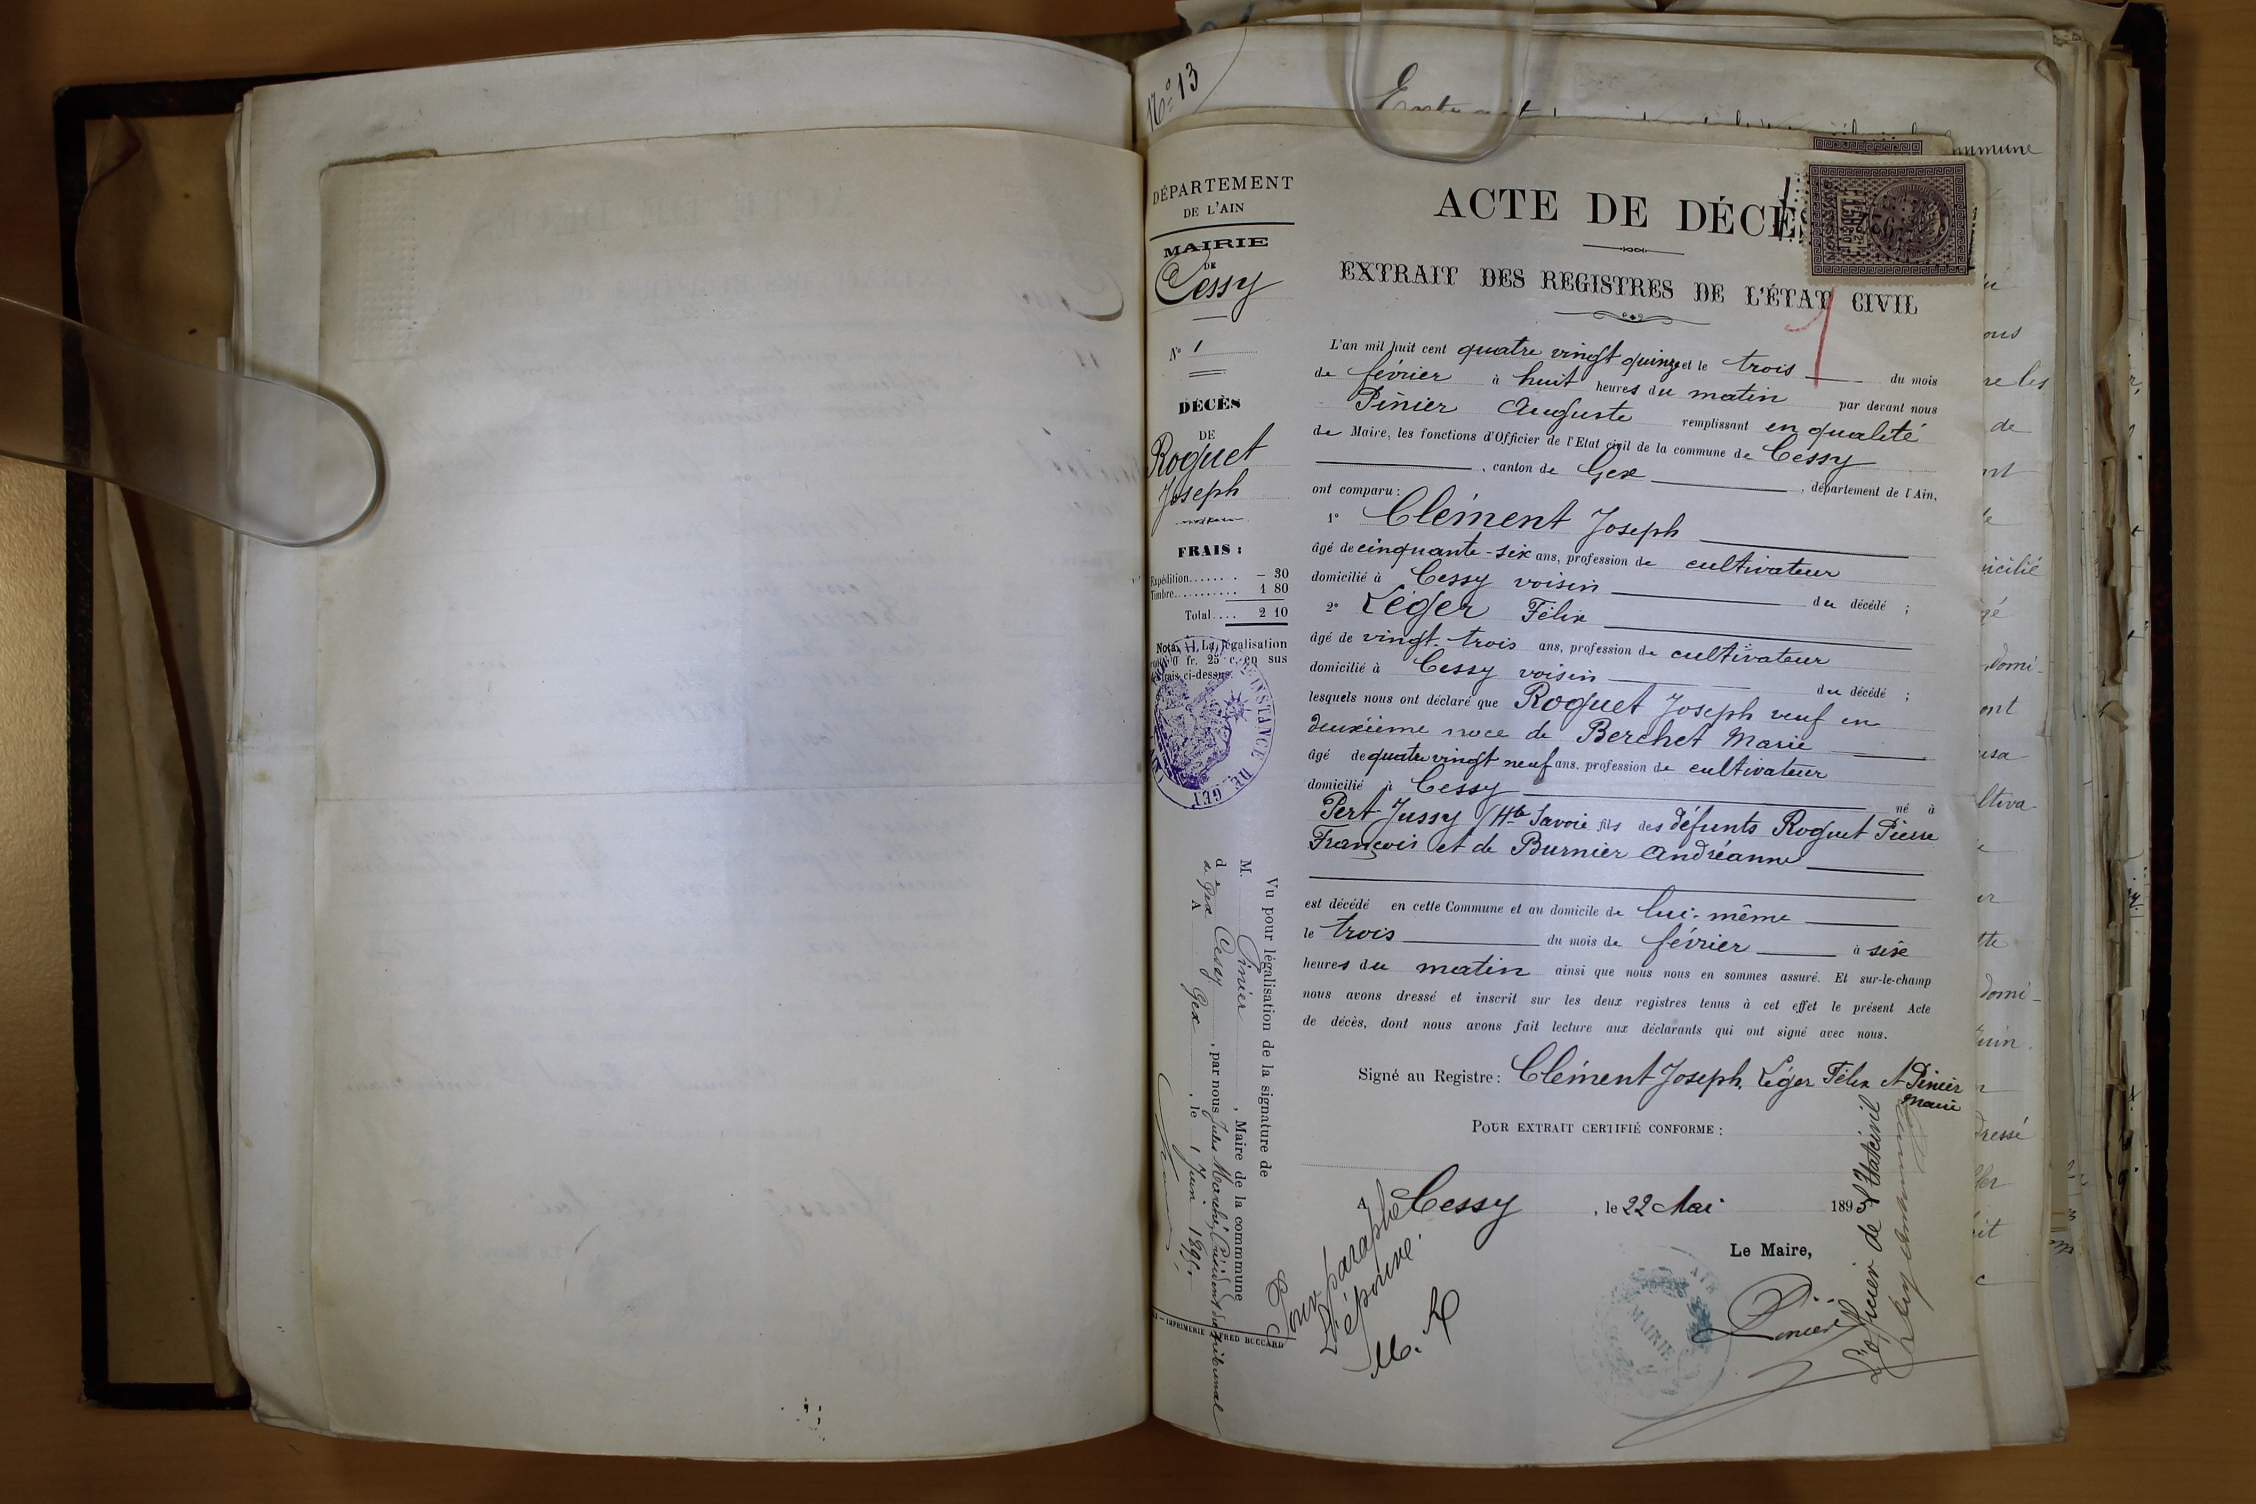 No 13
Extrait
commune
DÉPARTEMENT
DE L'AIN
MAIRIE
DE
Cessy
No 1
DÉCÈS
DE
Roguet
Joseph
FRAIS :
Expédition....... — 30
Timbre.......... 1 80
Total.... 2 10
Nota. — La légalisation
coûte 0 fr. 25 c. en sus
des frais ci-dessus.
INSTANCE DE GEX
ACTE DE DÉCÈS
EXTRAIT DES REGISTRES DE L'ÉTAT CIVIL
1
L'an mil huit cent quatre vingt quinze et le trois du mois
de février à huit heures du matin par devant nous
Pinier Auguste remplissant en qualité
de Maire, les fonctions d'Officier de l'Etat civil de la commune de Cessy
, canton de Gex , département de l'Ain,
ont comparu :
1° Clément Joseph
âgé de cinquante-six ans, profession de cultivateur
domicilié à Cessy voisin du décédé ;
2° Léger Félix
âgé de vingt-trois ans, profession de cultivateur
domicilié à Cessy voisin du décédé ;
lesquels nous ont déclaré que Roguet Joseph veuf en
deuxième noce de Berchet Marie
âgé de quatre vingt neuf ans, profession de cultivateur
domicilié à Cessy né à
Pert-Jussy (Hte Savoie fils des défunts Roguet Pierre
François et de Burnier Andréanne
est décédé en cette Commune et au domicile de lui-même
le trois du mois de février à six
heures du matin ainsi que nous nous en sommes assuré. Et sur-le-champ
nous avons dressé et inscrit sur les deux registres tenus à cet effet le présent Acte
de décès, dont nous avons fait lecture aux déclarants qui ont signé avec nous.
Signé au Registre : Clément Joseph, Léger Félix et Pinier
Maire
POUR EXTRAIT CERTIFIÉ CONFORME :
A Cessy , le 22 Mai 1895
Le Maire,
Pinier
MAIRIE
Pour paraphe
L'épouse.
M. R
L'officier de l'Etat civil
Vu pour légalisation de la signature de
M. Pinier , Maire de la commune
de Cessy , par nous Jules Marché, Président du tribunal
de Gex
A Gex , le 1 Juin 1895.
IMPRIMERIE ALFRED BUCCARD